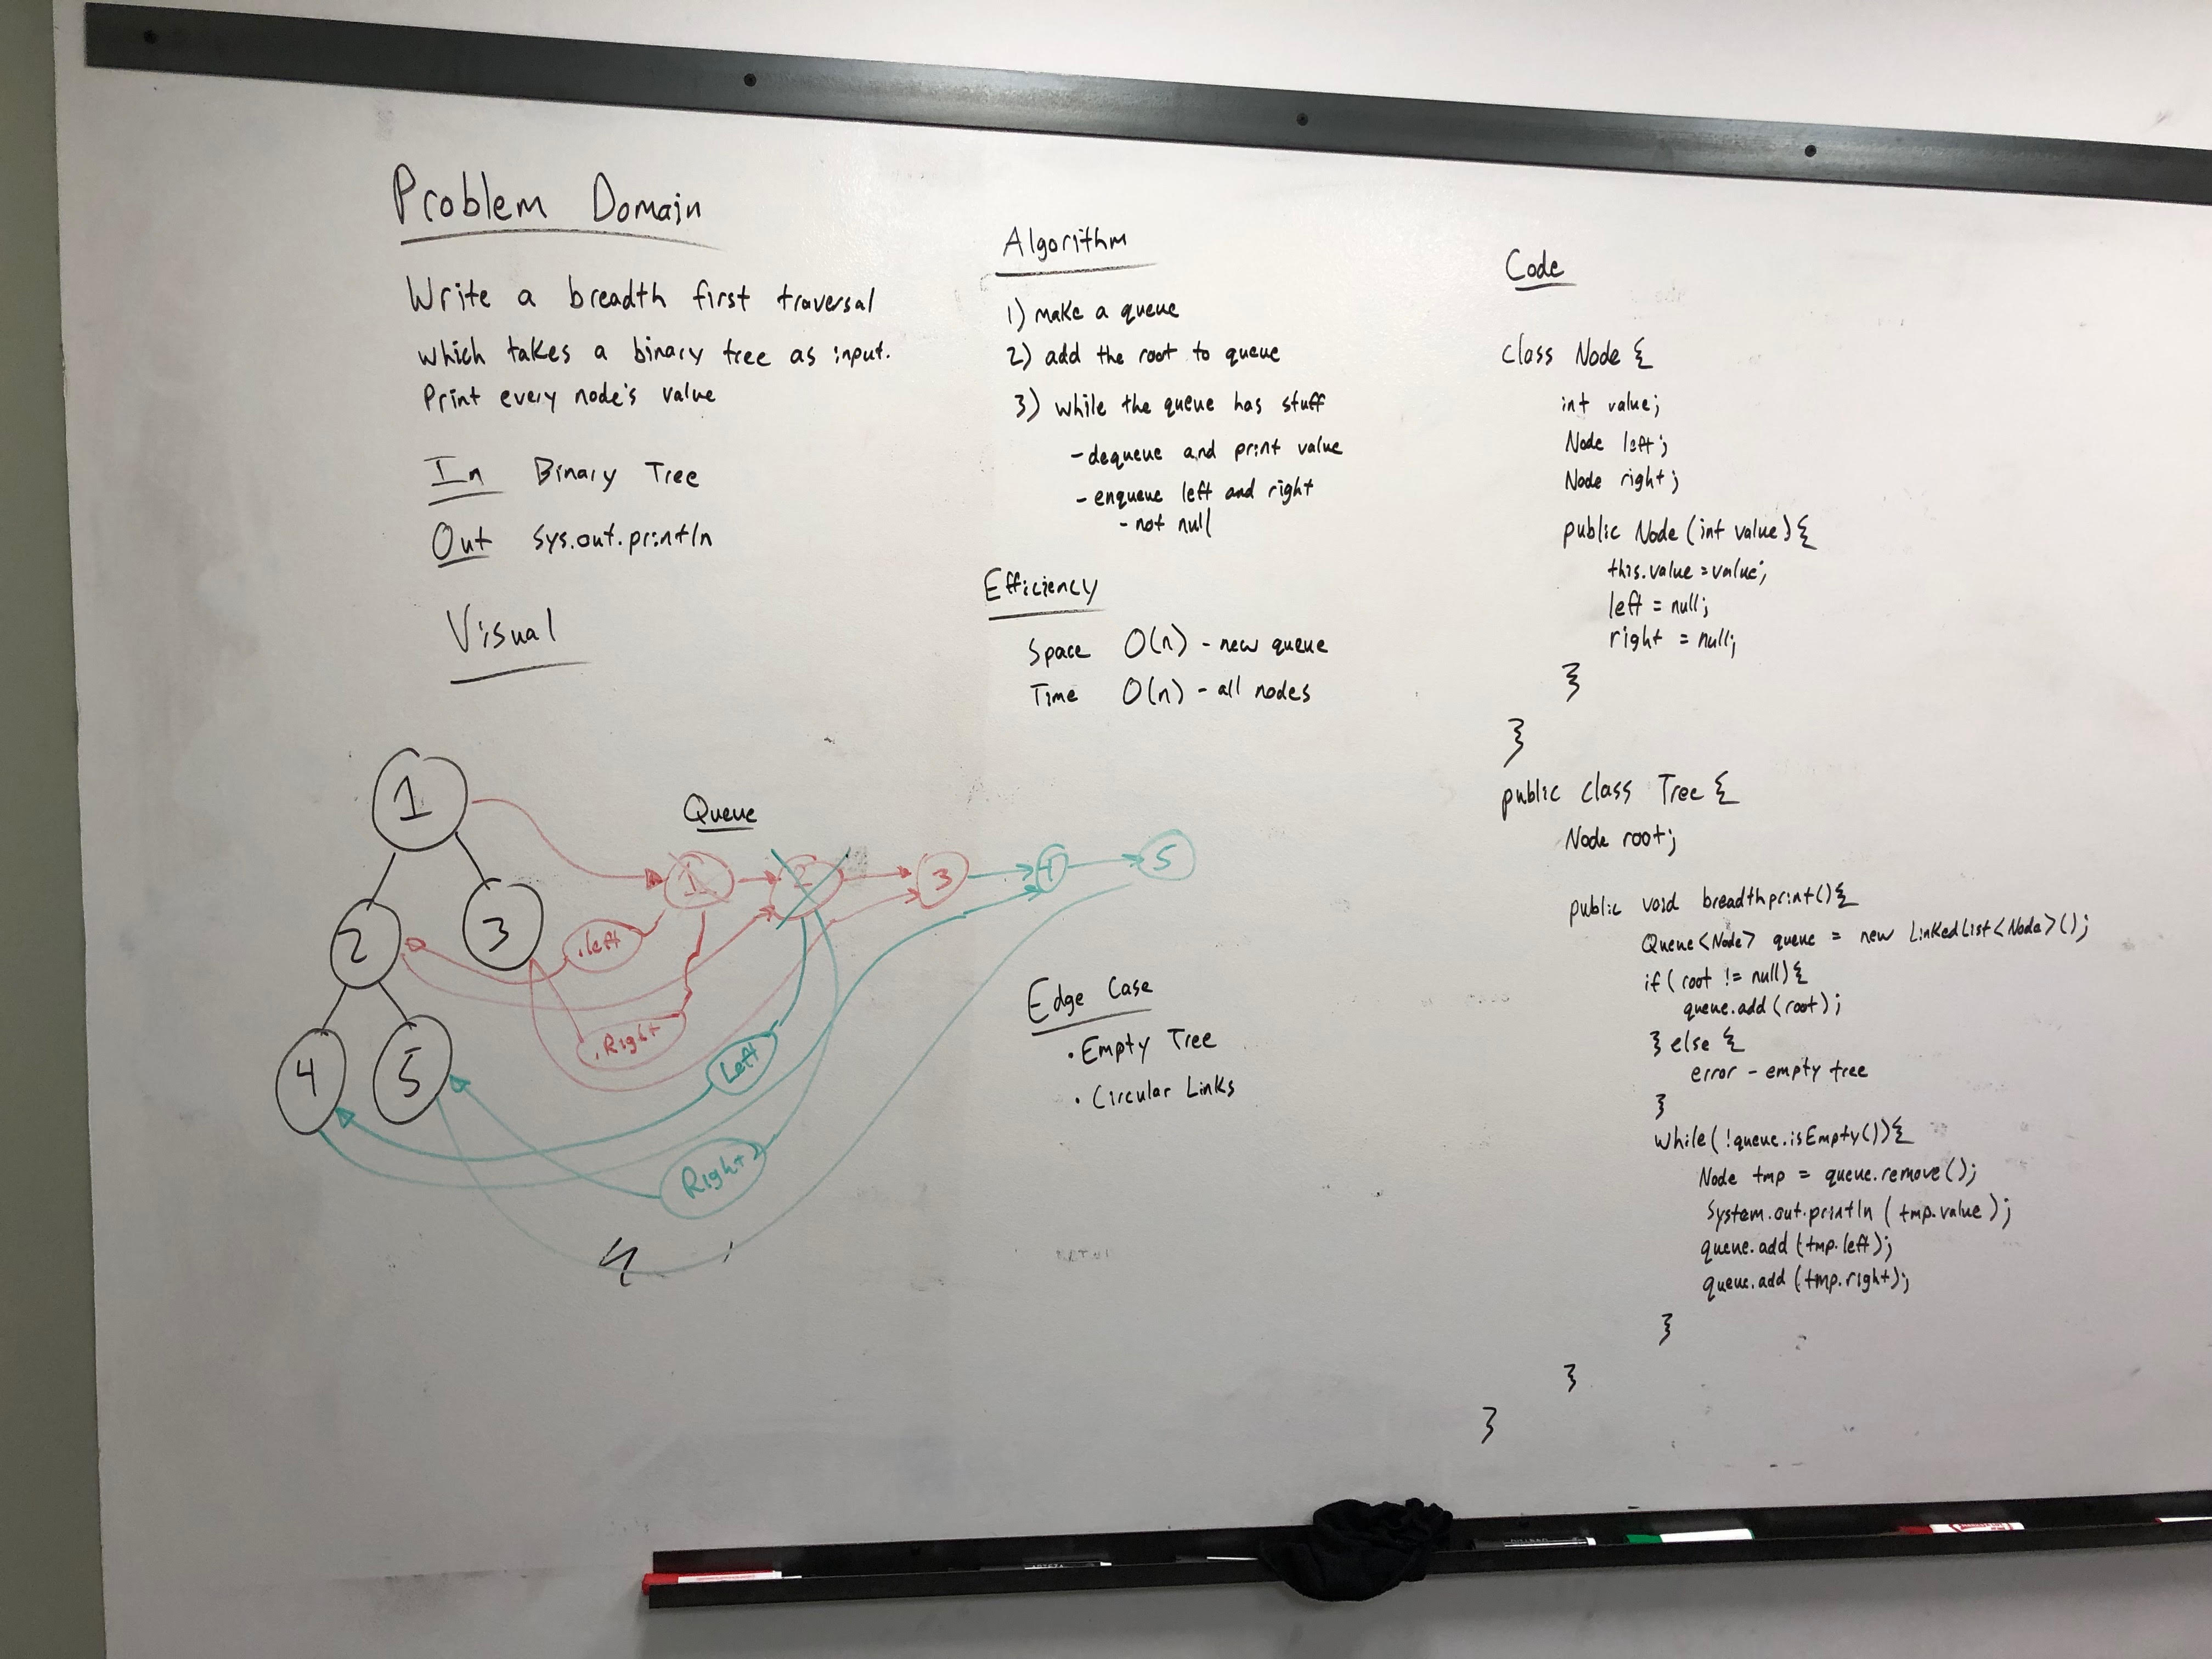 Problem Domain
Write a breadth first traversal
which takes a binary tree as input.
Print every node's value
In Binary Tree
Out Sys.out.println
Visual
1
2
3
4
5
Queue
1
2
3
4
5
.left
.Right
Left
Right
Algorithm
1) make a queue
2) add the root to queue
3) while the queue has stuff
- dequeue and print value
- enqueue left and right
- not null
Efficiency
Space O(n) - new queue
Time O(n) - all nodes
Edge Case
• Empty Tree
• Circular Links
Code
class Node {
int value;
Node left;
Node right;
public Node (int value) {
this.value = value;
left = null;
right = null;
}
}
public class Tree {
Node root;
public void breadthprint() {
Queue<Node> queue = new LinkedList<Node>();
if (root != null) {
queue.add(root);
} else {
error - empty tree
}
while(!queue.isEmpty()){
Node tmp = queue.remove();
System.out.println(tmp.value);
queue.add(tmp.left);
queue.add(tmp.right);
}
}
}